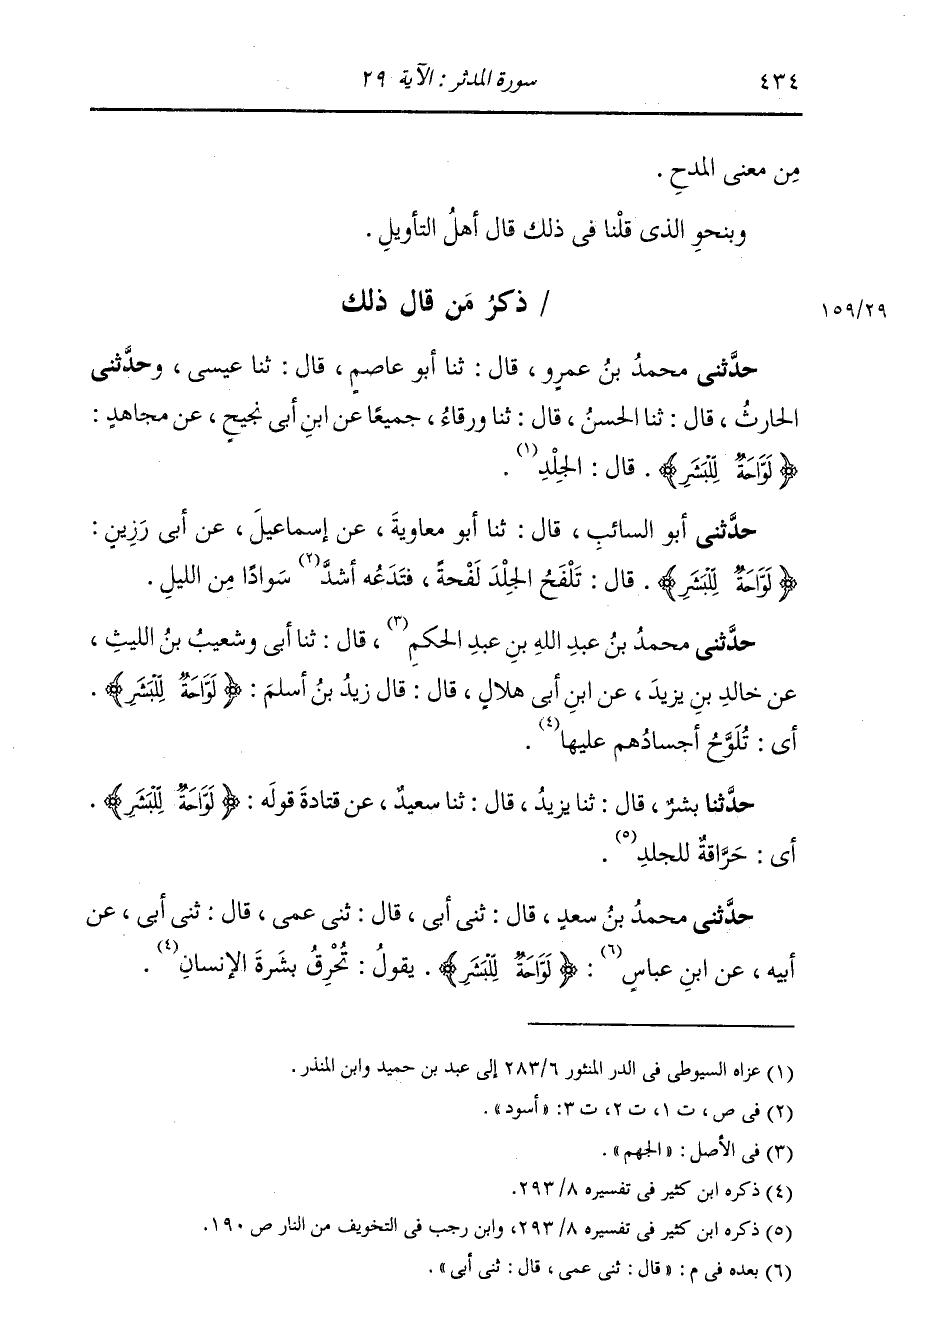 ٤٣٤ سورة المدثر : الآية ٢٩
مِن معنى المدحِ .
وبنحوِ الذى قلْنا فى ذلك قال أهلُ التأويلِ .
١٥٩/٢٩ / ذكرُ مَن قال ذلك
حدَّثنى محمدُ بنُ عمرٍو ، قال : ثنا أبو عاصمٍ ، قال : ثنا عيسى ، وحدَّثنى
الحارثُ ، قال : ثنا الحسنُ ، قال : ثنا ورقاءُ ، جميعًا عن ابنِ أبى نجيحٍ ، عن مجاهدٍ :
﴿ لَوَّاحَةٌ لِّلْبَشَرِ ﴾ . قال : الجلْدِ(١) .
حدَّثنى أبو السائبِ ، قال : ثنا أبو معاويةَ ، عن إسماعيلَ ، عن أبى رَزِينٍ :
﴿ لَوَّاحَةٌ لِّلْبَشَرِ ﴾ . قال : تَلْفَحُ الجلْدَ لَفْحةً ، فتَدَعُه أشدَّ(٢) سَوادًا مِن الليلِ .
حدَّثنى محمدُ بنُ عبدِ اللهِ بنِ عبدِ الحكمِ(٣) ، قال : ثنا أبى وشعيبُ بنُ الليثِ ،
عن خالدِ بنِ يزيدَ ، عن ابنِ أبى هلالٍ ، قال : قال زيدُ بنُ أسلمَ : ﴿ لَوَّاحَةٌ لِّلْبَشَرِ ﴾ .
أى : تُلَوَّحُ أجسادُهم عليها(٤) .
حدَّثنا بشرٌ ، قال : ثنا يزيدُ ، قال : ثنا سعيدٌ ، عن قتادةَ قولَه : ﴿ لَوَّاحَةٌ لِّلْبَشَرِ ﴾ .
أى : حَرَّاقةٌ للجلدِ(٥) .
حدَّثنى محمدُ بنُ سعدٍ ، قال : ثنى أبى ، قال : ثنى عمى ، قال : ثنى أبى ، عن
أبيه ، عن ابنِ عباسٍ(٦) : ﴿ لَوَّاحَةٌ لِّلْبَشَرِ ﴾ . يقولُ : تُحْرِقُ بشَرةَ الإنسانِ(٤) .
(١) عزاه السيوطى فى الدر المنثور ٢٨٣/٦ إلى عبد بن حميد وابن المنذر .
(٢) فى ص ، ت ١، ت ٢، ت ٣: « أسود » .
(٣) فى الأصل : « الجهم » .
(٤) ذكره ابن كثير فى تفسيره ٢٩٣/٨.
(٥) ذكره ابن كثير فى تفسيره ٢٩٣/٨، وابن رجب فى التخويف من النار ص ١٩٠.
(٦) بعده فى م : « قال : ثنى عمى ، قال : ثنى أبى » .